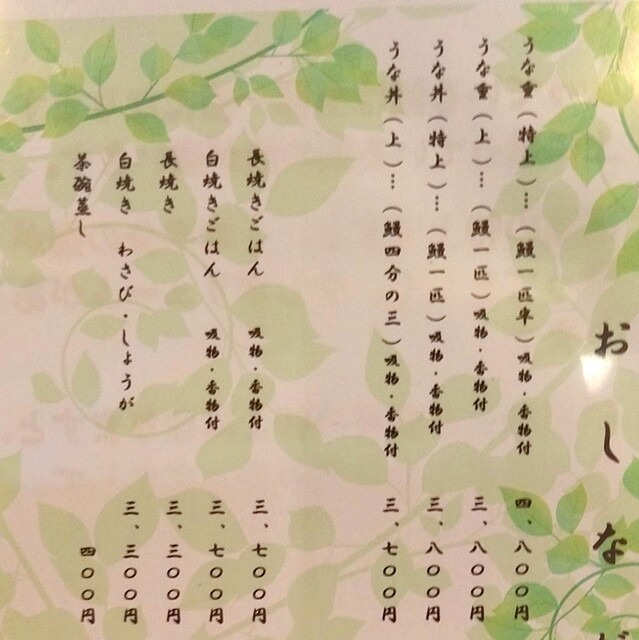 おしな
うな重（特上）…（鰻一匹半）吸物・香物付 四、八〇〇円
うな重（上）…（鰻一匹）吸物・香物付 三、八〇〇円
うな丼（特上）…（鰻一匹）吸物・香物付 三、八〇〇円
うな丼（上）…（鰻四分の三）吸物・香物付 三、七〇〇円
長焼きごはん 吸物・香物付 三、七〇〇円
白焼きごはん 吸物・香物付 三、七〇〇円
長焼き 三、三〇〇円
白焼き わさび・しょうが 三、三〇〇円
茶碗蒸し 四〇〇円